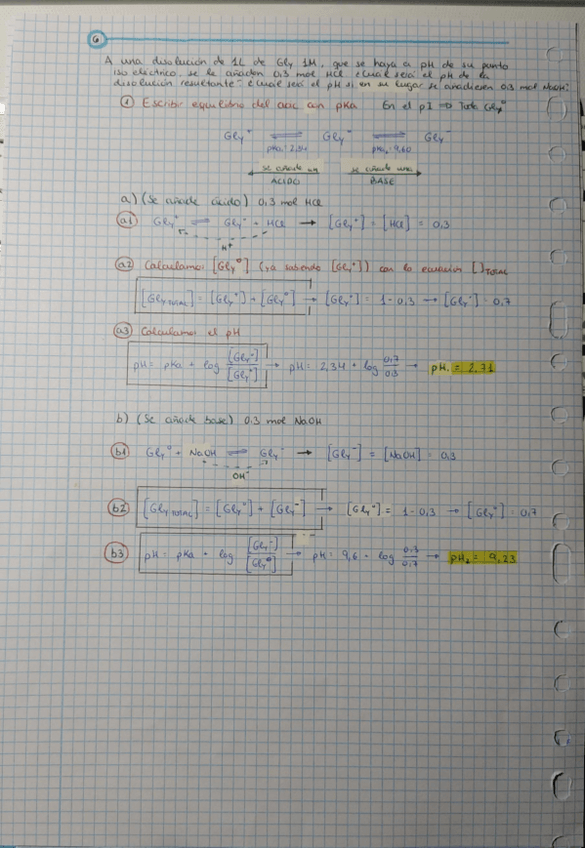 6
A una disolución de 1L de Gly 1M, que se haya a pH de su punto
iso electrico, se le añaden 0,3 mol HCl ¿Cual será el pH de la
disolución resultante? ¿Cual será el pH si en su lugar se añadiesen 0,3 mol NaOH?
① Escribir equilibrio del aac con pKa En el pI ⇒ Todo Gly⁰
Gly⁺ ⇌ Gly⁰ ⇌ Gly⁻
pKa₁: 2,34 pKa₂: 9,60
se añade un se añade una
ACIDO BASE
a) (Se añade ácido) 0,3 mol HCl
a1 Gly⁺ ⇌ Gly⁰ + HCl → [Gly⁺] = [HCl] = 0,3
H⁺
a2 Calculamos [Gly⁰] (ya sabiendo [Gly⁺]) con la ecuación [ ]TOTAL
[Gly TOTAL] = [Gly⁺] + [Gly⁰] → [Gly⁰] = 1 - 0,3 → [Gly⁰] = 0,7
a3 Calculamos el pH
pH = pKa + log [Gly⁰]/[Gly⁺] → pH = 2,34 + log 0,7/0,3 → pH₁ = 2,71
b) (Se añade base) 0,3 mol NaOH
b1 Gly⁰ + NaOH ⇌ Gly⁻ → [Gly⁻] = [NaOH] = 0,3
OH⁻
b2 [Gly TOTAL] = [Gly⁰] + [Gly⁻] → [Gly⁰] = 1 - 0,3 → [Gly⁰] = 0,7
b3 pH = pKa + log [Gly⁻]/[Gly⁰] → pH = 9,6 + log 0,3/0,7 → pH₂ = 9,23